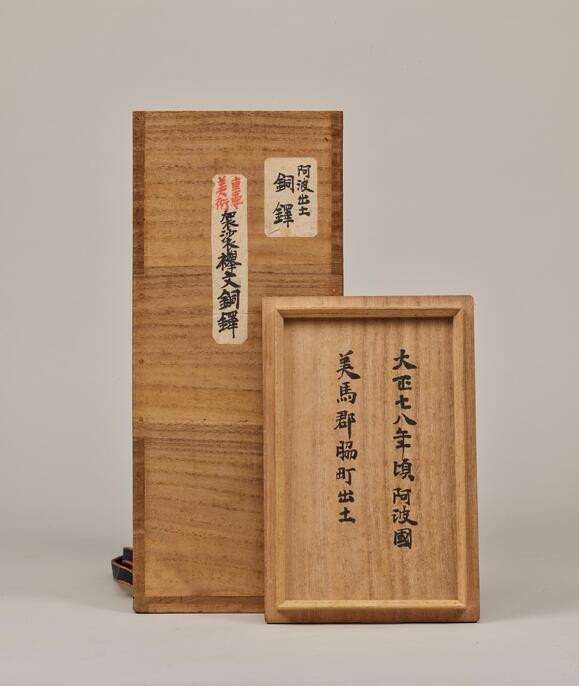 阿波出土
銅鐸
重要
美術
袈裟襷文銅鐸
大正七八年頃阿波國
美馬郡脇町出土